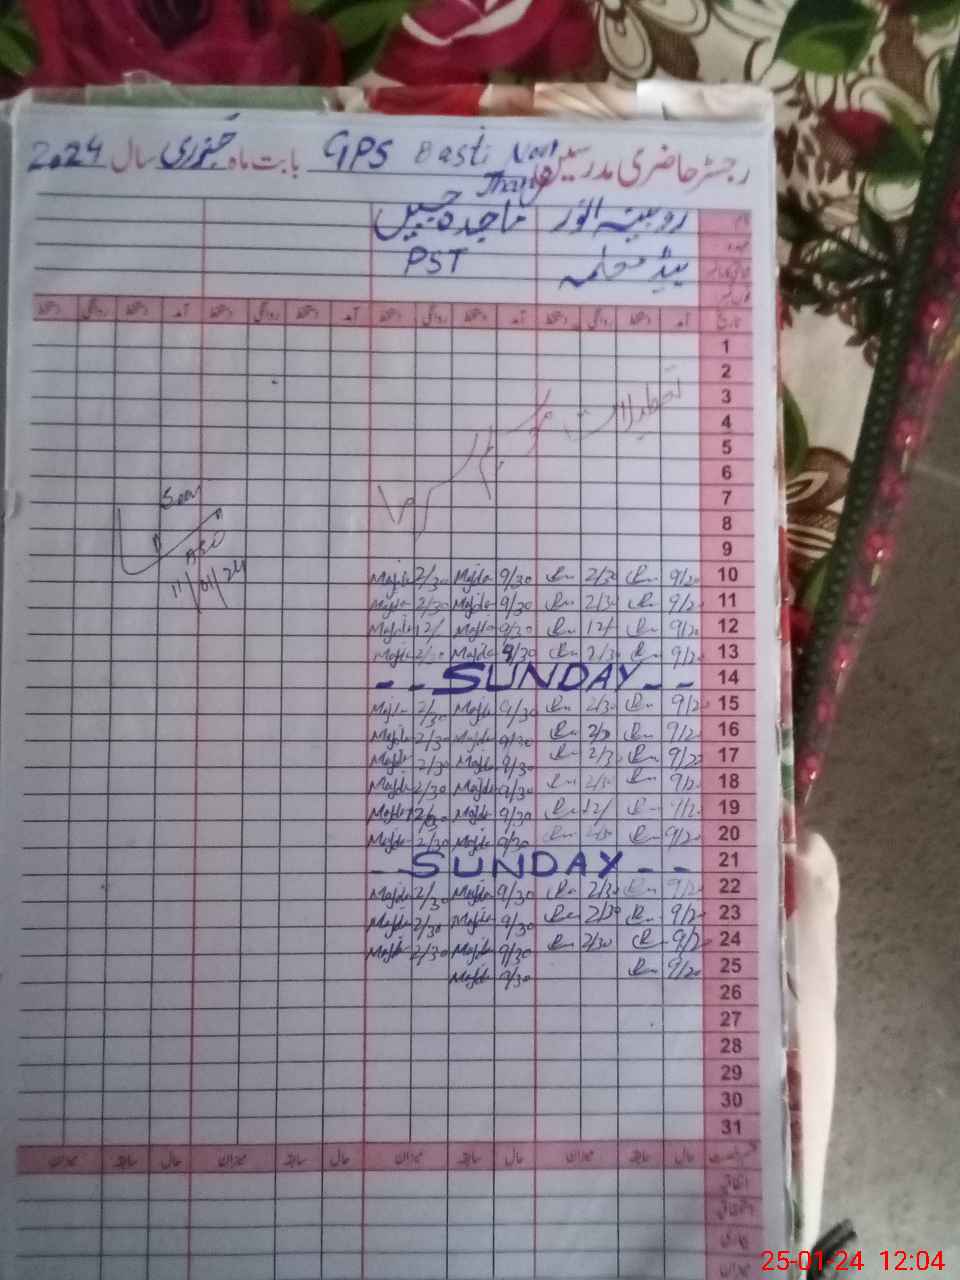 رجسٹر حاضری مدرسین GPS Basti Nori بابت ماہ جنوری سال 2024
Jhang
نام روبینہ انور ماجدہ جبیں
عہدہ
ہیڈ معلمہ PST
تاریخ آمد دستخط روانگی دستخط آمد دستخط روانگی دستخط آمد دستخط روانگی دستخط آمد دستخط روانگی دستخط
1
2
3
تعطیلات موسم سرما
4
5
6
7
Seen
8
9
AEO
11/01/24
10 9/20 2/30 9/30 Majida 2/30 Majida
11 9/20 2/30 9/30 Majida 2/30 Majida
12 9/20 12/ 9/30 Majida 12/ Majida
13 9/20 2/30 9/30 Majida 2/30 Majida
14 -- SUNDAY --
15 9/20 2/30 9/30 Majida 2/30 Majida
16 9/20 2/30 9/30 Majida 2/30 Majida
17 9/20 2/30 9/30 Majida 2/30 Majida
18 9/20 2/30 9/30 Majida 2/30 Majida
19 9/20 12/ 9/30 Majida Majida
20 9/20 2/30 9/30 Majida 2/30 Majida
21 - SUNDAY --
22 9/20 2/30 9/30 Majida 2/30 Majida
23 9/20 2/30 9/30 Majida 2/30 Majida
24 9/20 2/30 9/30 Majida 2/30 Majida
25 9/20 9/30 Majida
26
27
28
29
30
31
حال سابقہ میزان حال سابقہ میزان حال سابقہ میزان حال سابقہ میزان
اتفاقی
بیماری
میزان
25-01-24 12:04